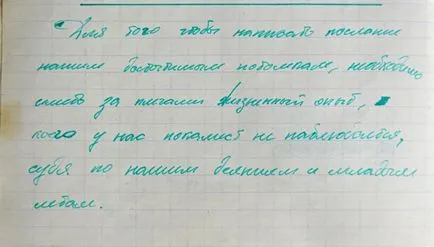 Для того чтобы написать послание
нашим достопочтимым потомкам, необходимо
иметь за плечами жизненный опыт,
у нас покамест не наблюдается,
судя по нашим деяниям и младым
летам.